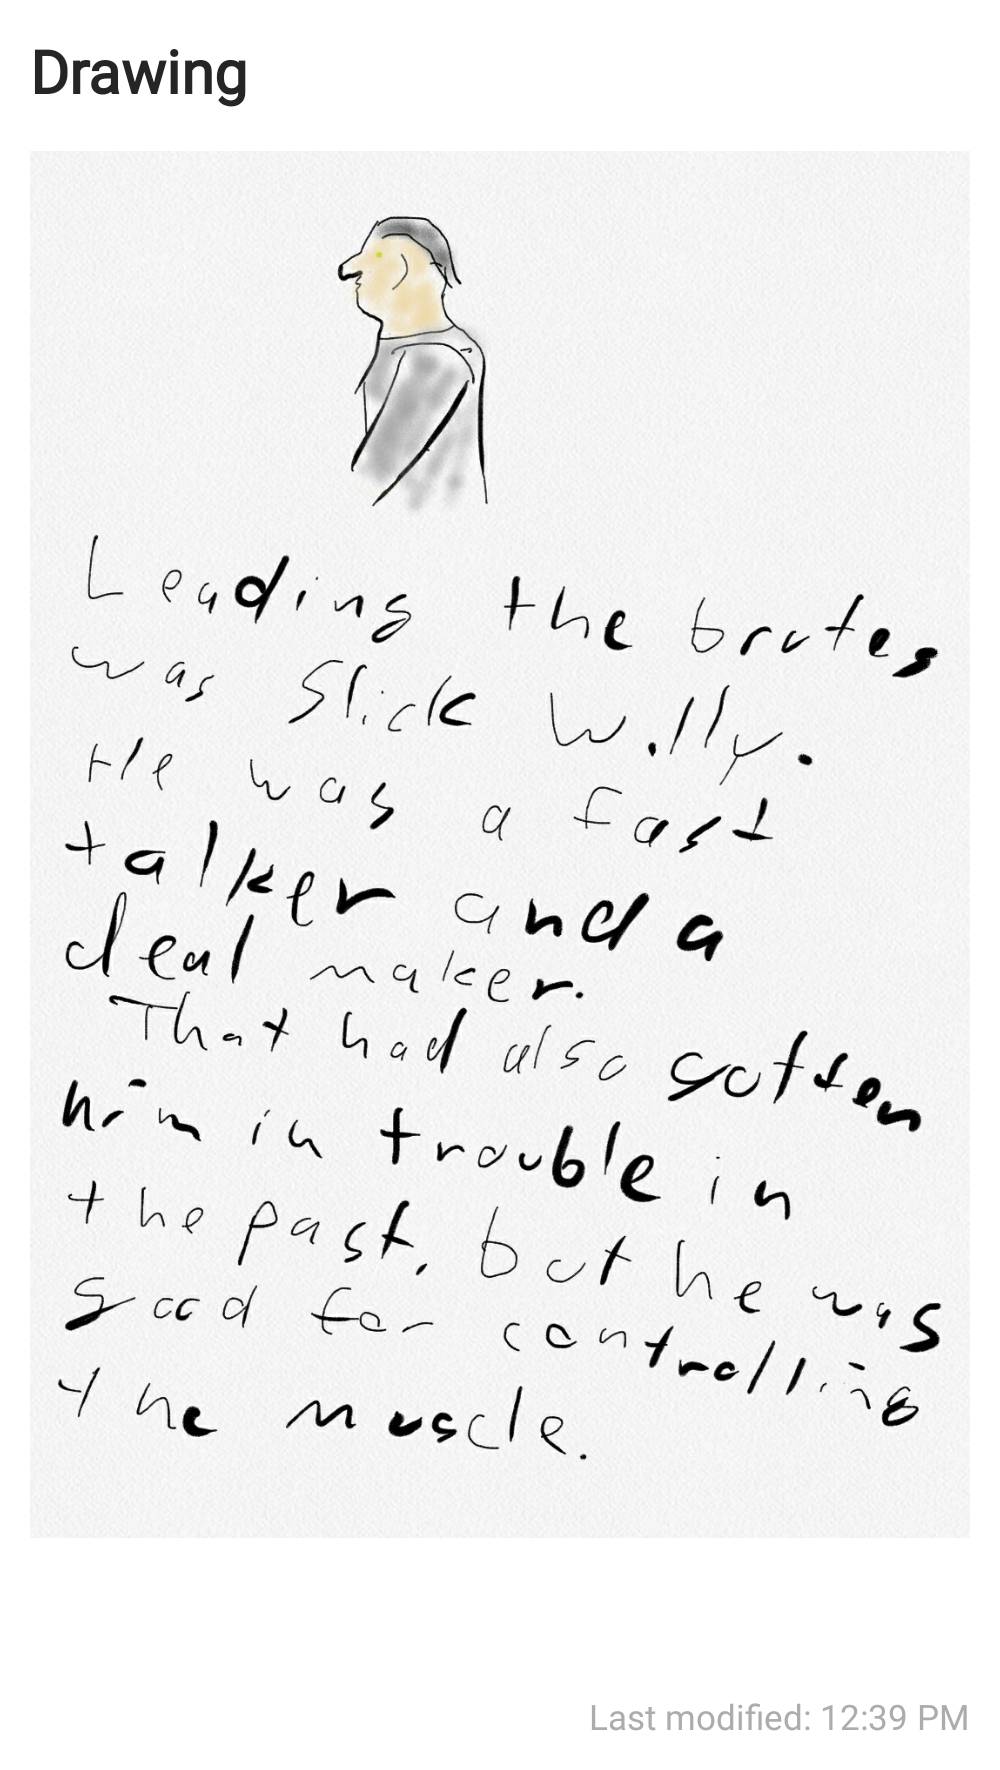 Drawing
Leading the brutes
was Slick Willy.
He was a fast
talker and a
deal maker.
That had also gotten
him in trouble in
the past, but he was
good for controlling
the muscle.
Last modified: 12:39 PM